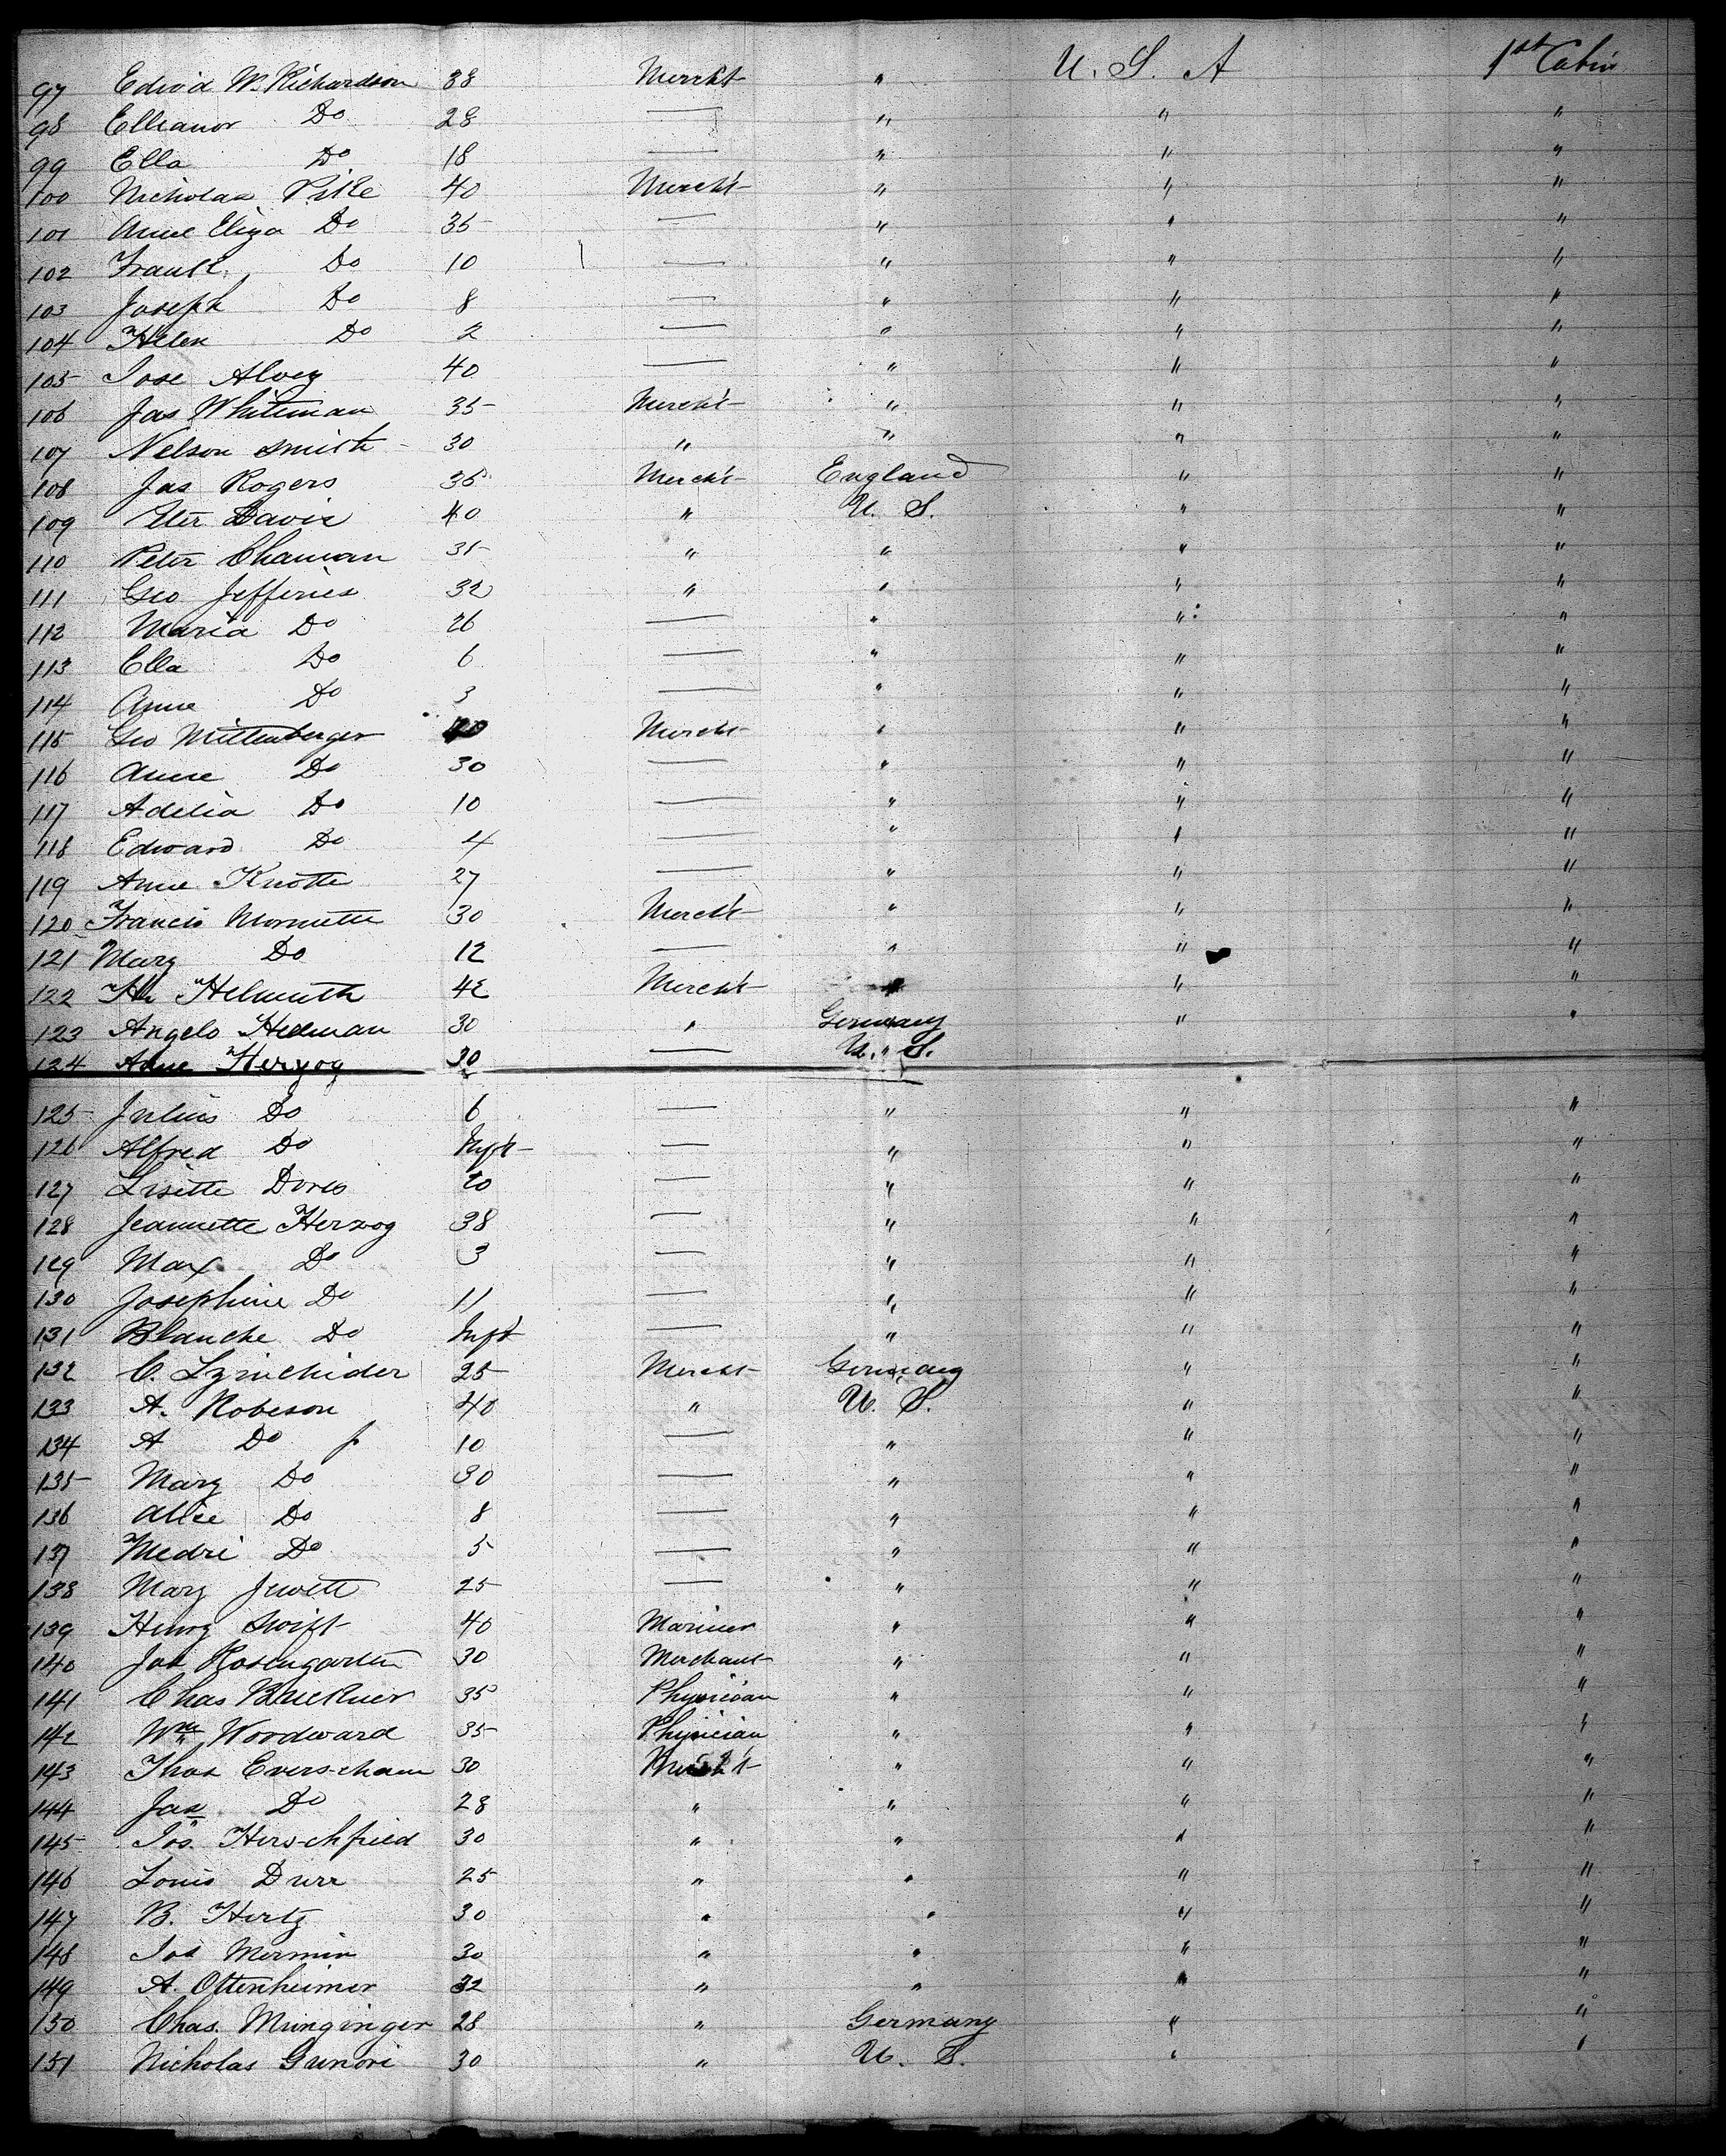 97 Edwd W. Richardson 38 Mercht " U. S. A 1st Cabin
98 Elleanor Do 28 — " " "
99 Ella Do 18 — " " "
100 Nicholas Pike 40 Mercht " " "
101 Anne Eliza Do 35 — " " "
102 Frank Do 10 — " " "
103 Joseph Do 8 — " " "
104 Helen Do 2 — " " "
105 Jose Alvez 40 — " " "
106 Jas Whiteman 35 Mercht " " "
107 Nelson Smith 30 " " " "
108 Jas Rogers 35 Mercht England " "
109 Peter Davis 40 " U. S. " "
110 Peter Chauvan 35 " " " "
111 Geo Jefferies 32 " " " "
112 Maria Do 26 — " " "
113 Ella Do 6 — " " "
114 Anne Do 3 — " " "
115 Geo Miltenberger 40 Mercht " " "
116 Anne Do 30 — " " "
117 Adelia Do 10 — " " "
118 Edward Do 4 — " " "
119 Anne Knotte 27 — " " "
120 Francis 30 Mercht " " "
121 Mary Do 12 — " " "
122 Helmuth 42 Mercht " " "
123 Angelo Heeman 30 " Germany " "
124 Herzog 30 — U. S.
125 Julius Do 6 — " " "
126 Alfred Do Inft — " " "
127 Lisette 20 — " " "
128 Jeannette Herzog 38 — " " "
129 Max Do 3 — " " "
130 Josephine Do 11 — " " "
131 Blanche Do Inft — " " "
132 C. 25 Mercht Germany " "
133 A. Robeson 40 " U. S. " "
134 A Do Jr 10 — " " "
135 Mary Do 30 — " " "
136 Alice Do 8 — " " "
137 Medri Do 5 — " " "
138 Mary Jewett 25 — " " "
139 Henry Swift 40 Mariner " " "
140 Jos Rosengarten 30 Merchant " " "
141 Chas Bruckner 35 Physician " " "
142 Wm Woodward 35 Physician " " "
143 Thos Evers-cham 30 Mercht " " "
144 Jas Do 28 " " " "
145 Jos. Hers-chfield 30 " " " "
146 Louis Durr 25 " " " "
147 B. Hertz 30 " " " "
148 Jos Mermin 30 " " " "
149 A. Ottenheimer 32 " " " "
150 Chas. Munzinger 28 " Germany " "
151 Nicholas Gunori 30 " U. S. " "